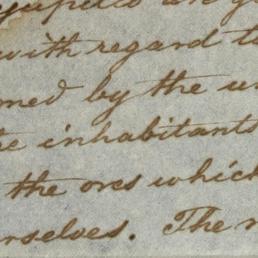 with regard to
by the
inhabitants
the ores which
rselves. The